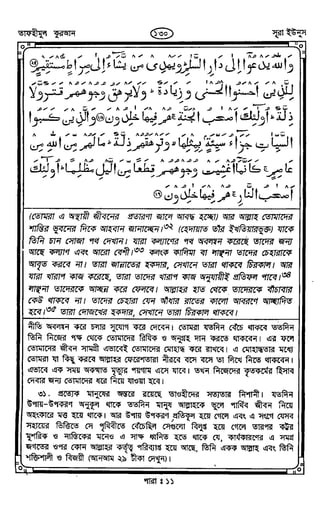 তাফহীমুল কুরআন
১৩০
সূরা ইউনুস
وَاللّٰهُ يَدْعُوْٓا اِلٰى دَارِ السَّلٰمِ وَيَهْدِىْ مَنْ يَّشَآءُ اِلٰى صِرَاطٍ مُّسْتَقِيْمٍ
لِلَّذِيْنَ اَحْسَنُوا الْحُسْنٰى وَزِيَادَةٌ وَلَا يَرْهَقُ وُجُوْهَهُمْ قَتَرٌ وَّلَا
ذِلَّةٌ اُولٰٓئِكَ اَصْحٰبُ الْجَنَّةِ هُمْ فِيْهَا خٰلِدُوْنَ وَالَّذِيْنَ كَسَبُوا
السَّيِّاٰتِ جَزَآءُ سَيِّئَةٍ بِمِثْلِهَا وَتَرْهَقُهُمْ ذِلَّةٌ مَا لَهُمْ مِّنَ اللّٰهِ مِنْ
عَاصِمٍ كَاَنَّمَآ اُغْشِيَتْ وُجُوْهُهُمْ قِطَعًا مِّنَ الَّيْلِ مُظْلِمًا اُولٰٓئِكَ
اَصْحٰبُ النَّارِ هُمْ فِيْهَا خٰلِدُوْنَ
(তোমরা এ অস্থায়ী জীবনের প্রতারণা জালে আবদ্ধ হচ্ছো) আর আল্লাহ তোমাদের
শান্তির ভুবনের দিকে আহবান জানাচ্ছেন। (হেদায়াত তাঁর ইখতিয়ারভুক্ত) যাকে
তিনি চান সোজা পথ দেখান। যারা কল্যাণের পথ অবলম্বন করেছে তাদের জন্য
আছে কল্যাণ এবং আরো বেশী। কলংক কালিমা বা লাঞ্ছনা তাদের চেহারাকে
আবৃত করবে না। তারা জান্নাতের হকদার, সেখানে তারা থাকবে চিরকাল। আর
যারা খারাপ কাজ করেছে, তারা তাদের খারাপ কাজ অনুযায়ীই প্রতিফল পাবে।
লাঞ্ছনা তাদেরকে আচ্ছন্ন করে ফেলবে। আল্লাহর হাত থেকে তাদেরকে বাঁচাবার
কেউ থাকবে না। তাদের চেহারা যেন আঁধার রাতের কালো আবরণে আচ্ছাদিত
হবে। তারা দোজখের হকদার, সেখানে তারা চিরকাল থাকবে।
নীতি অবলম্বন করে চলার সুযোগ করে দেবেন। তোমরা যতদিন বেঁচে থাকবে ততদিন
তিনি নিজের পক্ষ থেকে তোমাদের রিযিক ও অনুগ্রহ দান করতে থাকবেন। এর ফলে
তোমাদের জীবন সামগ্রী এভাবেই তোমাদের মোহান্ধ করে রাখবে। এ মোহান্ধতার মধ্যে
তোমরা যা কিছু করবে আল্লাহর ফেরেশতারা নীরবে বসে বসে তা লিখে নিতে থাকবেন।
এভাবে এক সময় অকস্মাত মৃত্যুর পয়গাম এসে যাবে। তখন নিজেদের কৃতকর্মের হিসাব
দেবার জন্য তোমাদের ধরে নিয়ে যাওয়া হবে।
৩১. প্রত্যেক মানুষের অন্তরে রয়েছে তাওহীদের সত্যতার নিশানী। যতদিন
উপায়-উপকরণ অনুকূল থাকে ততদিন মানুষ আল্লাহকে ভুলে পার্থিব জীবন নিয়ে
অহংকারে মত্ত হয়ে থাকে। আর উপায় উপকরণ প্রতিকূল হয়ে গেলে এবং এ সংগে যেসব
সহায়ের ভিত্তিতে সে পৃথিবীতে বেঁচেছিল সেগুলো বিলুপ্ত হয়ে গেলে তারপর কট্টর
মুশরিক ও নাস্তিকের মনেও এ সাক্ষ ধ্বনিত হতে থাকে যে, কার্যকারণের এ সমগ্র
জগতের ওপর কোন আল্লাহর কর্তৃত্ব পরিব্যাপ্ত হয়ে আছে, তিনি একক আল্লাহ এবং তিনি
শক্তিশালী ও বিজয়ী (আনআম ২৯ টীকা দেখুন)।
পারা : ১১